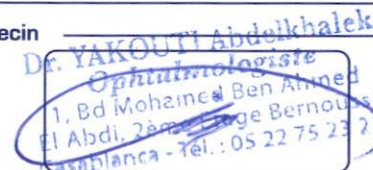 ecin
Dr. YAKOUTI Abdelkhalek
Ophtalmologiste
1, Bd Mohamed Ben Ahmed
El Abdi, 2ème Bernouss
Casablanca - Tél. : 05 22 75 23 2